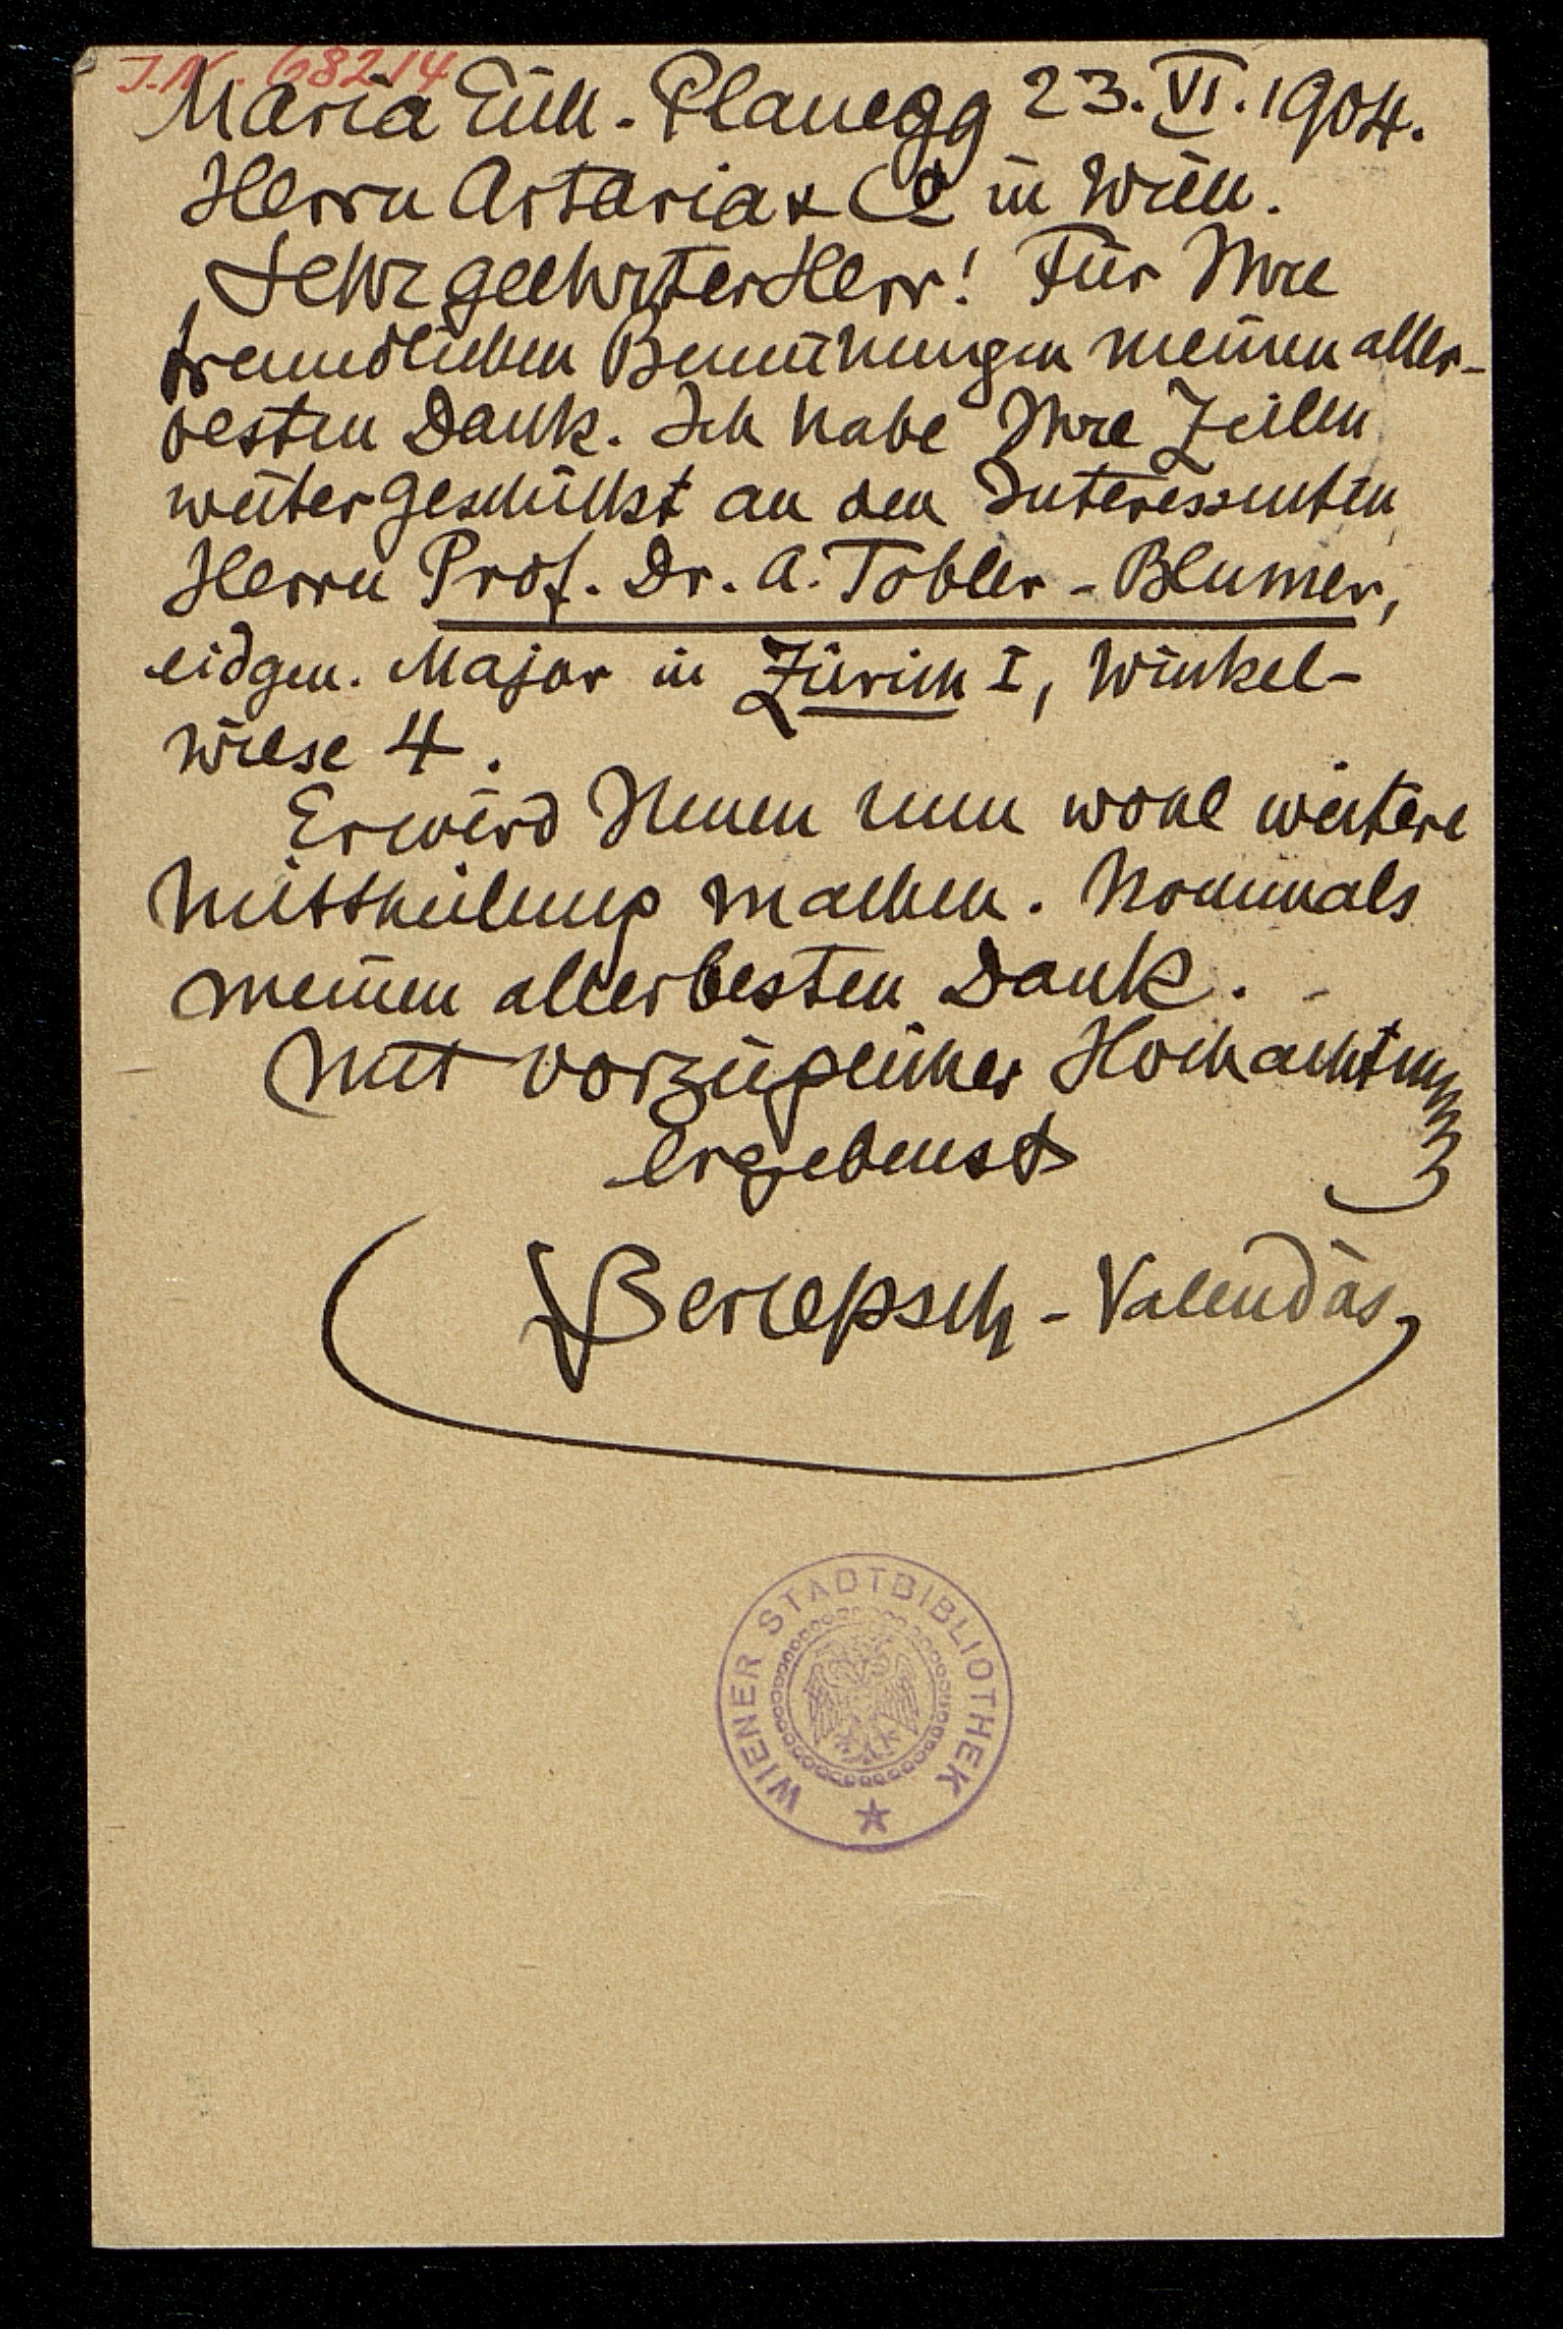 J.N. 68214
Maria Eich-Planegg 23. VI. 1904.
Herrn Artaria & Co in Wien.
Sehr geehrter Herr! Für Ihre
freundlichen Bemühungen meinen aller-
besten Dank. Ich habe Ihre Zeilen
weiter geschickt an den Interessenten
Herrn Prof. Dr. A. Tobler-Blumer,
eidgen. Major in Zürich I, Winkel-
wiese 4.
Er wird Ihnen nun wohl weitere
Mittheilung machen. Nochmals
meinen allerbesten Dank.
Mit vorzüglicher Hochachtung
ergebenst
Berlepsch-Valendàs
WIENER STADTBIBLIOTHEK